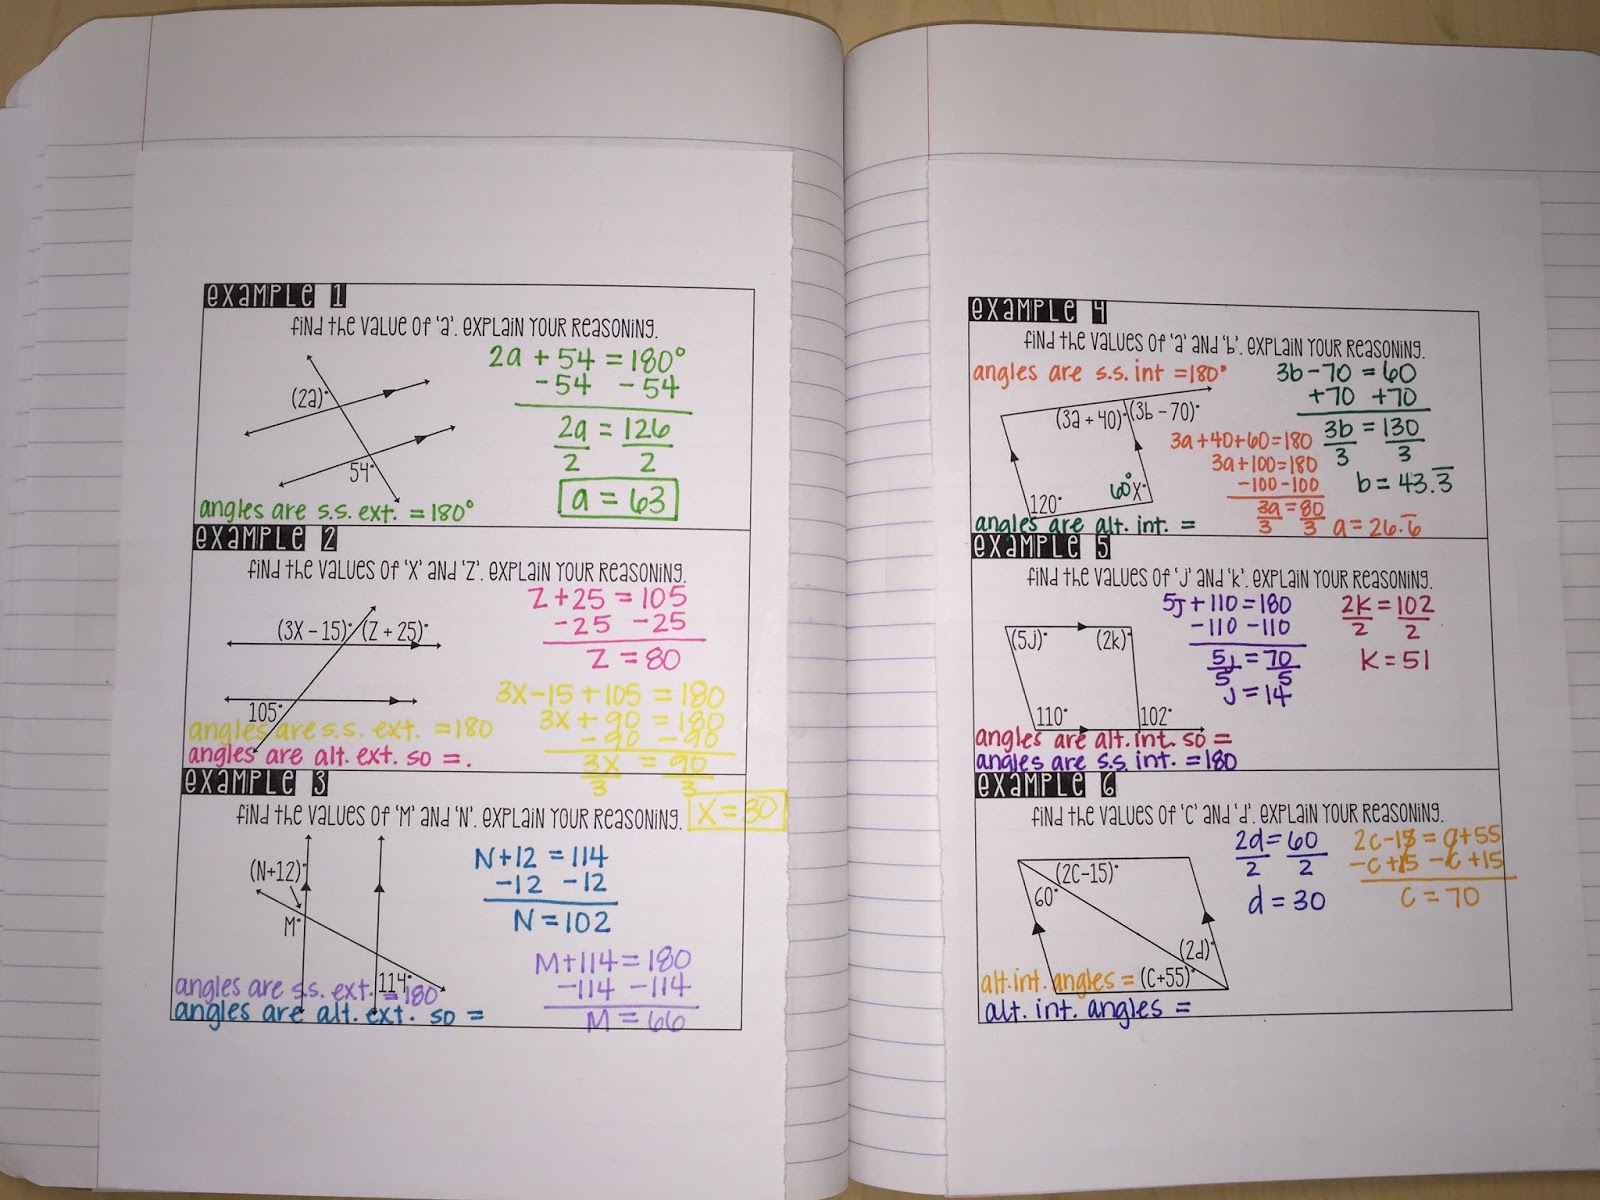 example 1
find the value of 'a'. explain your reasoning.
(2a)°
54°
2a + 54 = 180°
-54 -54
2a = 126
2 2
a = 63
angles are s.s. ext. = 180°
example 2
find the values of 'x' and 'z'. explain your reasoning.
(3x - 15)° (z + 25)°
105°
z + 25 = 105
-25 -25
z = 80
3x - 15 + 105 = 180
3x + 90 = 180
- 90 - 90
3x = 90
3 3
x = 30
angles are s.s. ext. = 180
angles are alt. ext. so =.
example 3
find the values of 'm' and 'n'. explain your reasoning.
(n+12)°
m°
114°
N+12 = 114
-12 -12
N = 102
M+114 = 180
-114 -114
M = 66
angles are s.s. ext. = 180
angles are alt. ext. so =
example 4
find the values of 'a' and 'b'. explain your reasoning.
angles are s.s. int = 180°
(3a + 40)° (3b - 70)°
120°
60° x°
3b - 70 = 60
+70 +70
3b = 130
3 3
b = 43.3̅
3a+40+60=180
3a+100=180
-100 -100
3a = 80
3 3
a = 26.6̅
angles are alt. int. =
example 5
find the values of 'j' and 'k'. explain your reasoning.
(5j)° (2k)°
110° 102°
5j + 110 = 180
-110 -110
5j = 70
5 5
j = 14
2k = 102
2 2
k = 51
angles are alt. int. so =
angles are s.s. int. = 180
example 6
find the values of 'c' and 'd'. explain your reasoning.
(2c-15)°
60°
(2d)°
(c+55)°
2d = 60
2 2
d = 30
2c-15 = c+55
-c+15 -c+15
c = 70
alt. int. angles =
alt. int. angles =